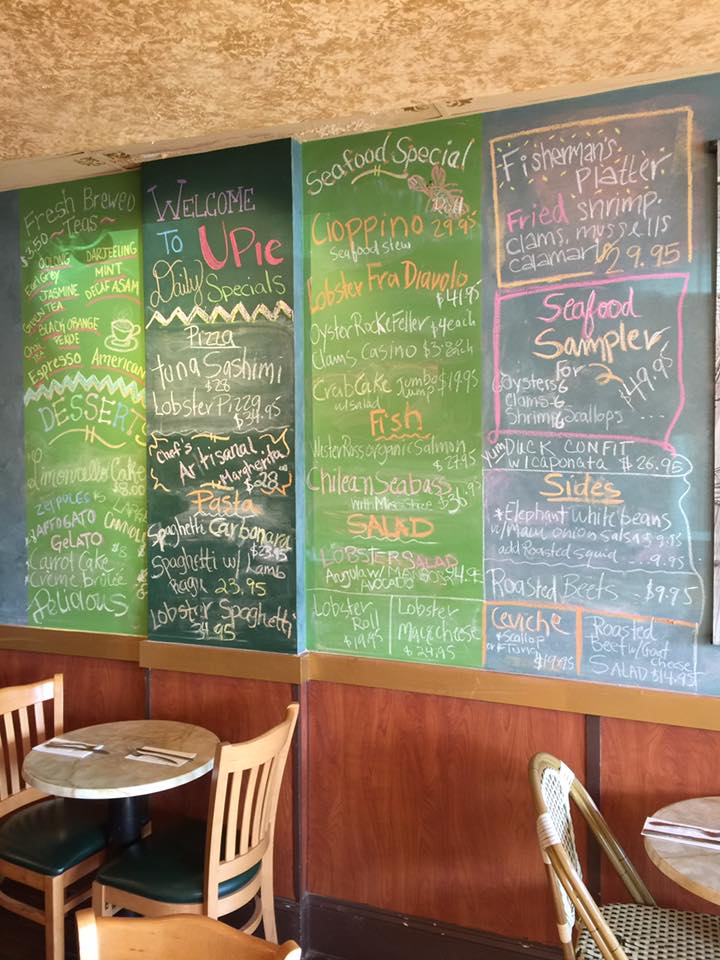 Fresh Brewed
$3.50 ~Teas~
OOLONG DARJEELING
Earl Grey MINT
JASMINE DECAF ASAM
GREEN TEA
BLACK ORANGE
Espresso American
DESSERTS
Limoncello Cake
$8.00
ZEPPOLES $5
AFFOGATO
CANNOLI
GELATO
Carrot Cake $8
Creme brulee
Delicious
WELCOME
TO UPie
Daily Specials
Pizza
tuna Sashimi
$28
Lobster Pizza
$34.95
Chef's
Artisanal
w/ Margherita
$28.00
Pasta
Spaghetti Carbonara
$23.95
Spaghetti w/ Lamb
Ragu 23.95
Lobster Spaghetti
Seafood Special
Cioppino 29.95
Seafood stew
Lobster Fra Diavolo
$41.95
Oyster Rockefeller $4 each
Clams Casino
Crab Cake Jumbo $19.95
w/ salad
Fish
Wester Ross organic Salmon
$27.95
Chilean Seabass
with
SALAD
LOBSTER SALAD
AVOCADO
Lobster
Roll
$19.95
Lobster
Mac & cheese
$24.95
Fisherman's
Platter
Fried shrimp.
clams, mussells
calamari 29.95
Seafood
Sampler
For 2
$49.95
Oysters 6
Clams-6
Shrimp 6 Scallops ....
yum Duck CONFIT
w/ caponata $26.95
Sides
*Elephant white beans
w/ Maui onion salsa $9.95
add Roasted squid ... 9.95
Roasted Beets - $9.95
Ceviche
*scallop
or *Tuna
$19.95
Roasted
Beet w/ Goat
cheese
SALAD $14.95